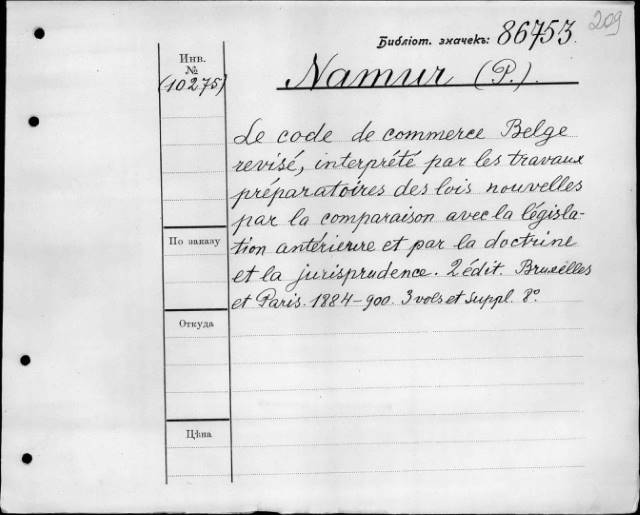 209
Библіот. значекъ: 86753.
Инв.
№
(10275)
Namur (P.).
Le code de commerce Belge
revisé, interprété par les travaux
préparatoires des lois nouvelles
par la comparaison avec la législa-
tion antérieure et par la doctrine
et la jurisprudence. 2 édit. Bruxelles
et Paris. 1884-900. 3 vols et Suppl. 8º.
По заказу
Откуда
Цѣна